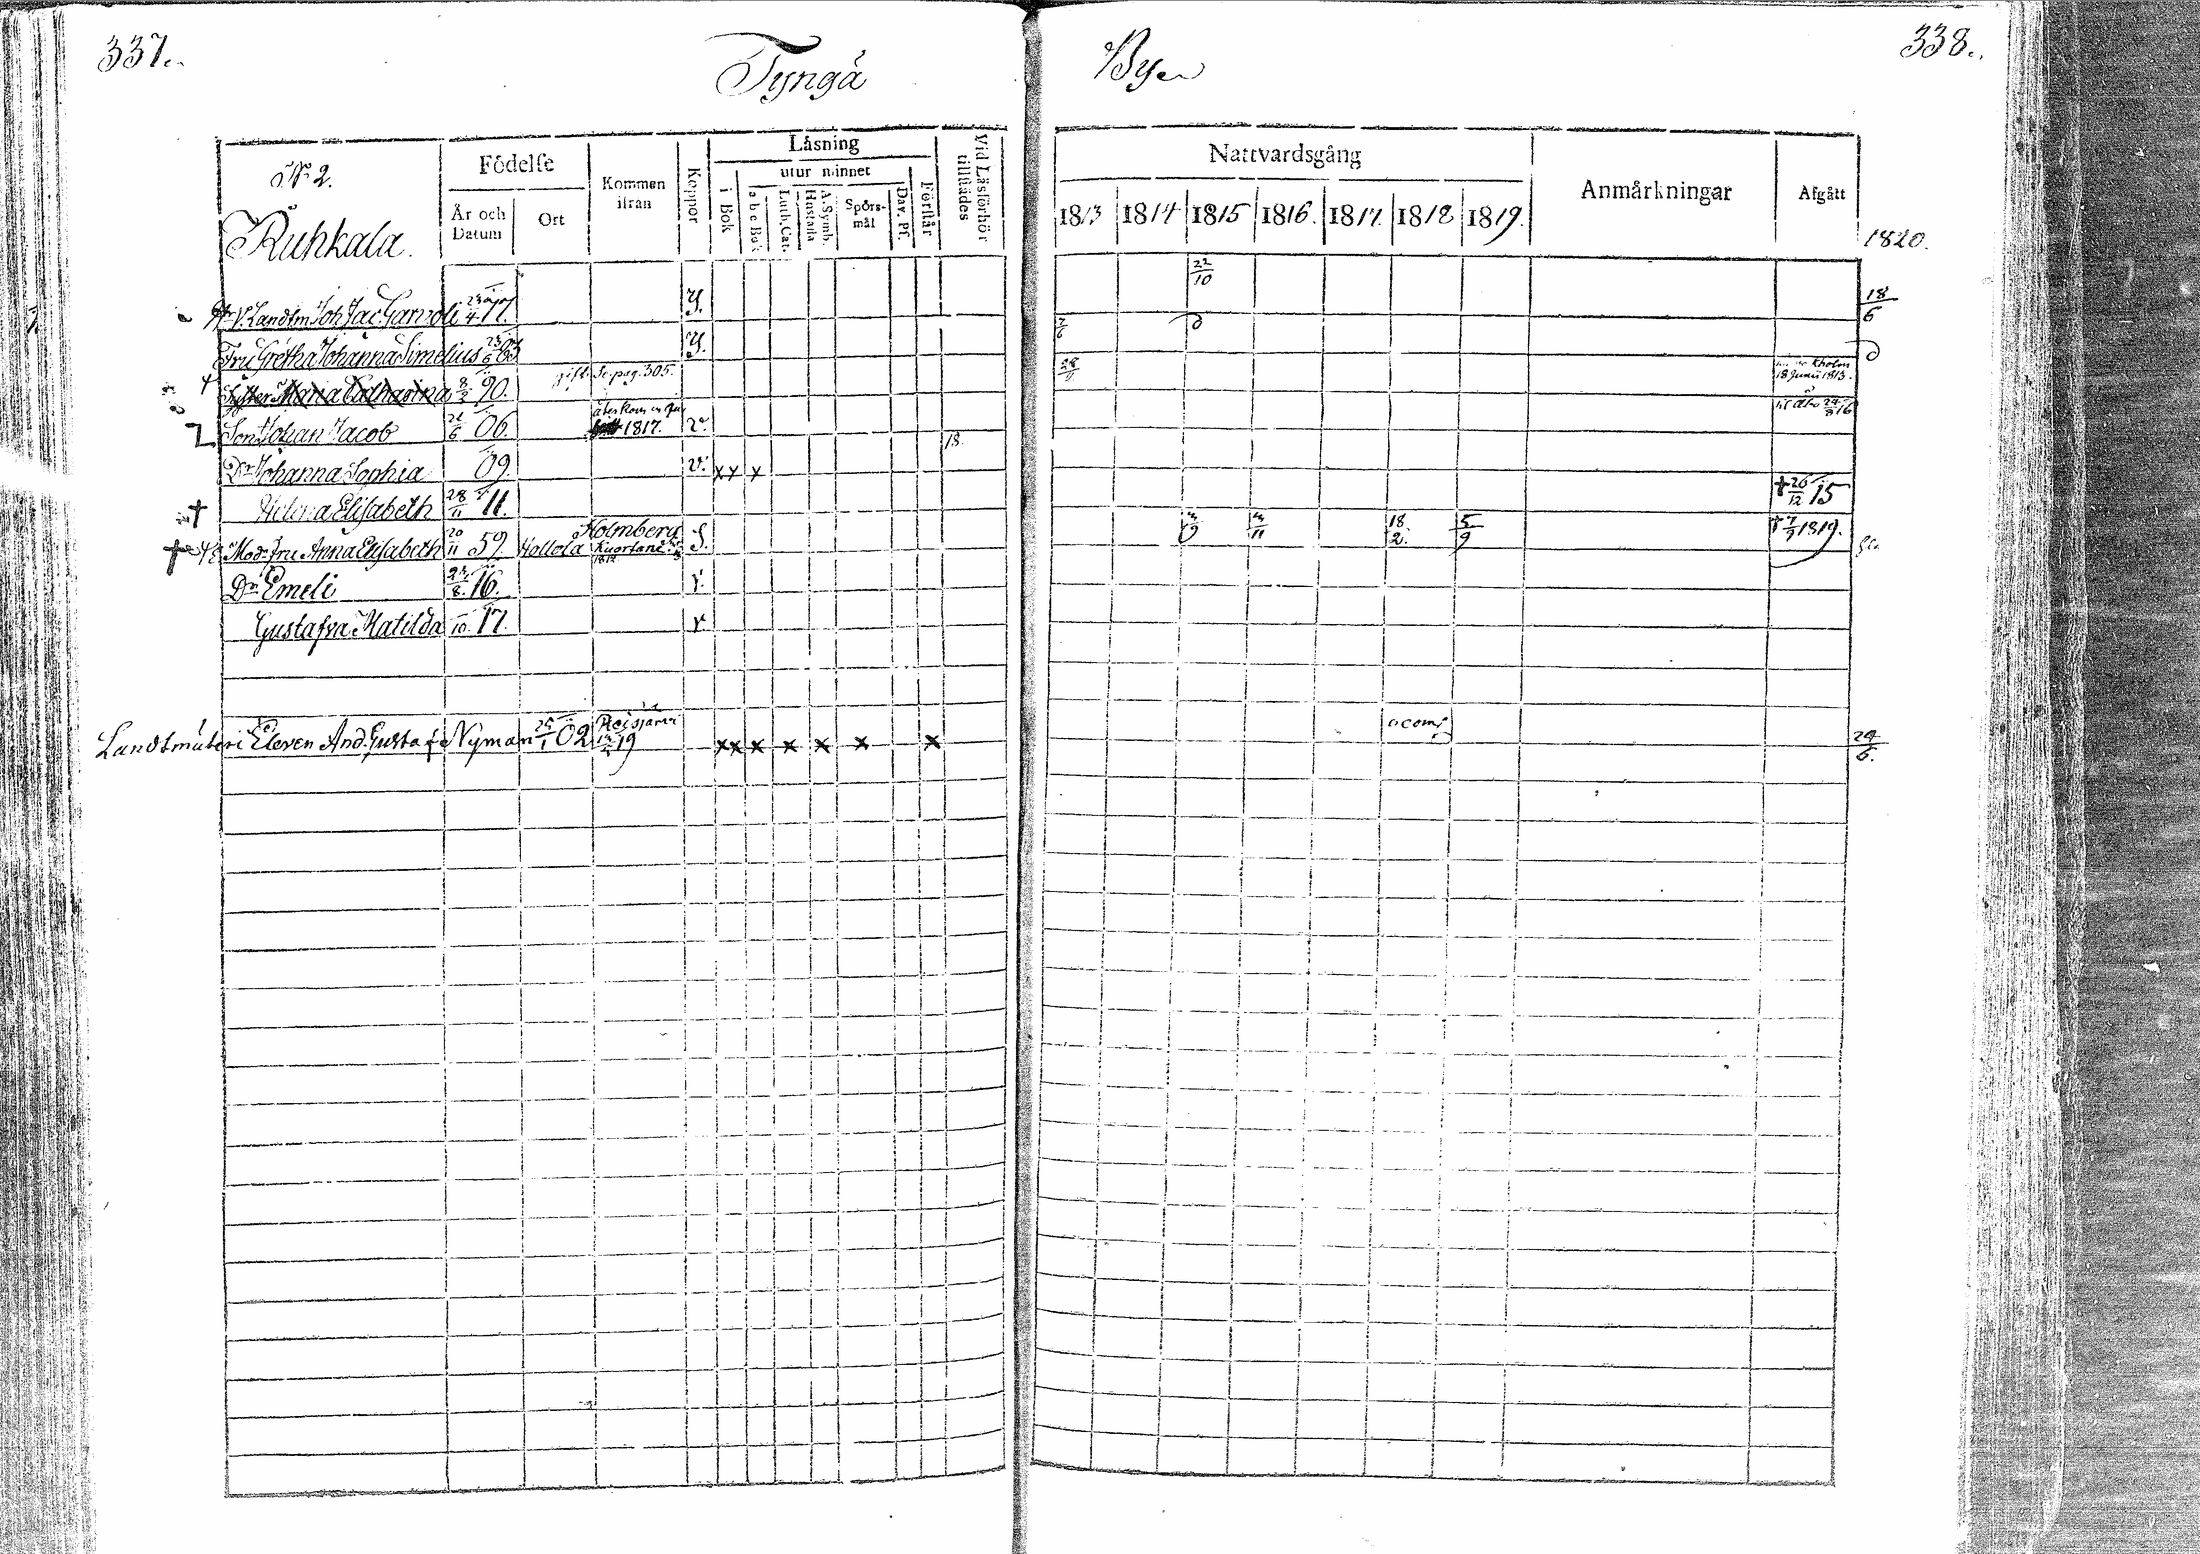 337.
Tyngä
Byen
338.
N:o 2.
Ruhkala.
Födelse
År och Datum
Ort
Kommen ifrån
Koppor
Läsning
utur minnet
i Bok
a b c Bok
Luth. Cat.
A. Symb. Hustafla
Spörsmål
Dav. Ps.
Förstår
Vid Läsförhör tillstädes
Nattvardsgång
1813 1814 1815 1816. 1817. 1818 1819.
Anmärkningar
Afgått
1820.
22/10
V. Landtm Joh Jac. Garvoli 23/4 77. 18/6
Fru Gretha Johanna Simelius 83 7/6
Syster Maria Catharina 8/2 90. gift. Se pag. 305. 28/ Kholm 18 Junii 1813.
Son Johan Jacob 21/6 06. återkom 1817. v. 24/8 16
18.
Dr Johanna Sophia 09. v. x x x
† Helena Elisabeth 28/11 11. † 26/12 15
† Mod. Fru Anna Elisabeth 20/11 59. Hollola Holmberg Kuortane 1812 S. /9 /11 18/2. 5/9 † 7/9 1819.
Dr Emeli 8. 16. v.
Gustafva Matilda 10. 17. v
Landtmäteri Eleven And. Gustaf Nyman /1 02 Reisjärvi 19 x x x x x x x 24/6.